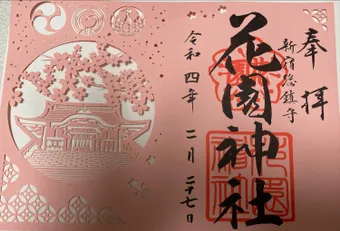 奉拝
新宿総鎮守
花園神社
令和四年二月二十七日